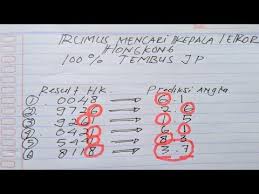 RUMUS MENCARI KEPALA / EKOR
HONGKONG
100% TEMBUS JP
Result HK. Prediksi Angka
① 0048 → 6 1
② 9726 → 2 6
③ 926 → 1 5
④ 042 → 6 1
⑤ 54 → 8 3
⑥ 8118 → 3.7